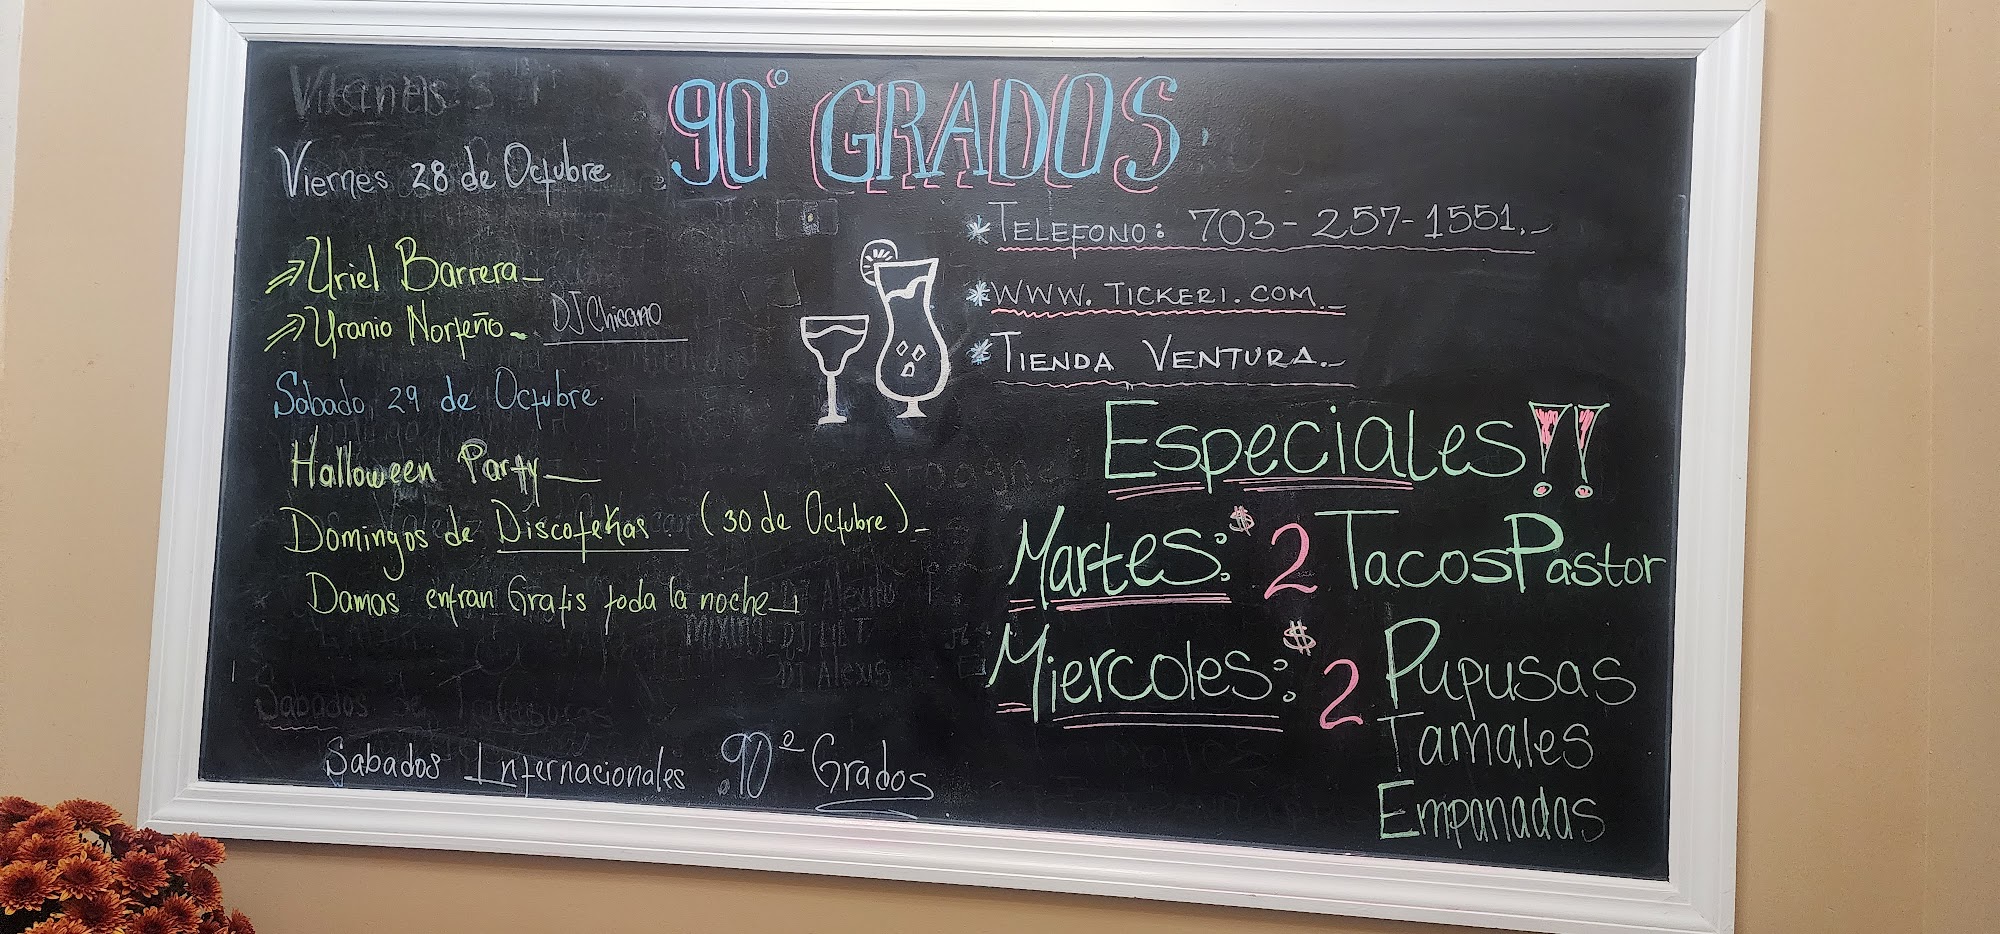 90° GRADOS
Viernes 28 de Octubre
Uriel Barrera
Uranio Norteño DJ Chicano
Sabado, 29 de Octubre.
Halloween Party
Domingos de Discotekas (30 de Octubre)
Damas entran Gratis toda la noche
MIXING DJ
DJ Alexis
Sabados de
Sabados Internacionales 90° Grados
*TELEFONO: 703-257-1551.-
*WWW.TICKERI.COM.-
*TIENDA VENTURA.-
ESPECIALES!!
Martes: $2 Tacos Pastor
Miercoles: $2 Pupusas
Tamales
Empanadas